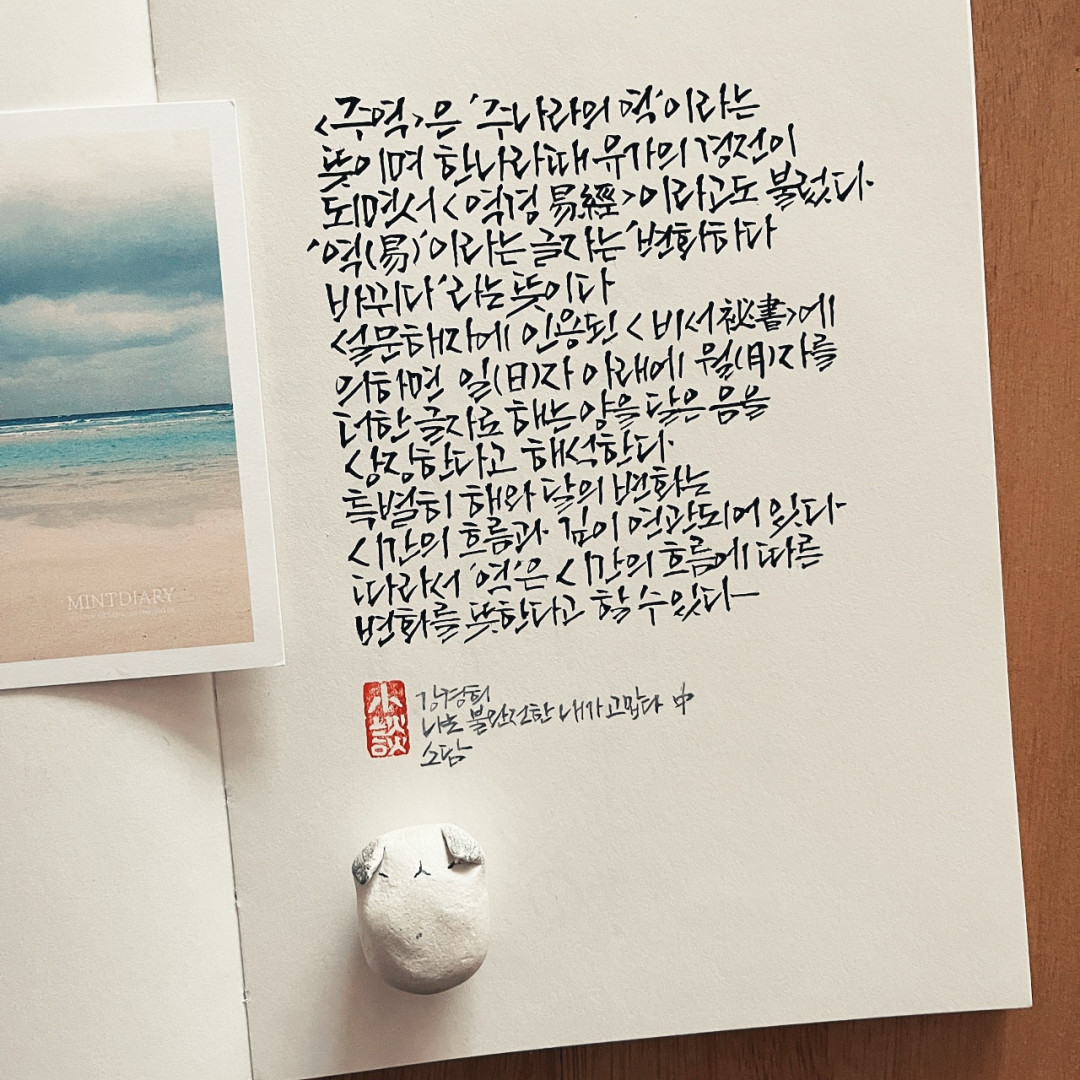 <주역>은 '주나라의 역'이라는
뜻이며 한나라때 유가의 경전이
되면서 <역경 易經>이라고도 불렀다.
'역(易)'이라는 글자는 '변화하다
바뀌다'라는 뜻이다
설문해자에 인용된 <비서 祕書>에
의하면 일(日)자 아래에 월(月)자를
더한 글자로 해는 양을 달은 음을
상징한다고 해석한다.
특별히 해와 달의 변화는
시간의 흐름과 깊이 연관되어 있다.
따라서 '역'은 시간의 흐름에 따른
변화를 뜻한다고 할 수 있다
MINTDIARY
小談
강경희
나는 불완전한 내가 고맙다 中
소담